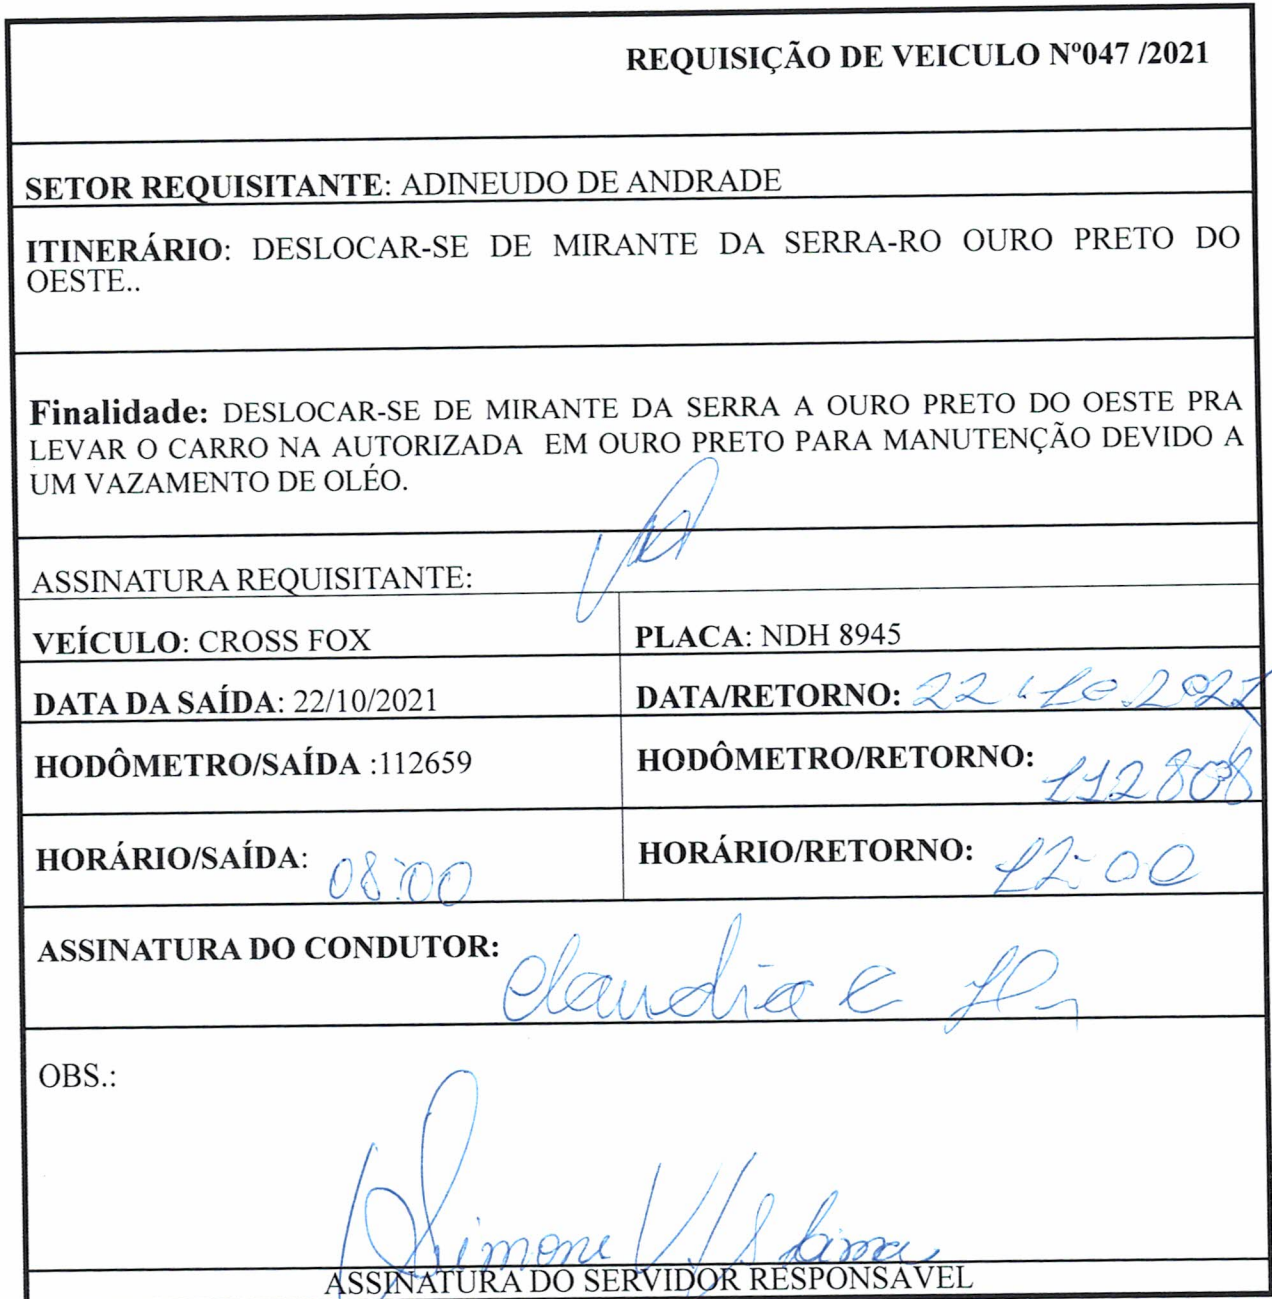 REQUISIÇÃO DE VEICULO Nº047 /2021
SETOR REQUISITANTE: ADINEUDO DE ANDRADE
ITINERÁRIO: DESLOCAR-SE DE MIRANTE DA SERRA-RO OURO PRETO DO
OESTE..
Finalidade: DESLOCAR-SE DE MIRANTE DA SERRA A OURO PRETO DO OESTE PRA
LEVAR O CARRO NA AUTORIZADA EM OURO PRETO PARA MANUTENÇÃO DEVIDO A
UM VAZAMENTO DE OLÉO.
ASSINATURA REQUISITANTE:
VEÍCULO: CROSS FOX
PLACA: NDH 8945
DATA DA SAÍDA: 22/10/2021
DATA/RETORNO: 22.10.2021
HODÔMETRO/SAÍDA :112659
HODÔMETRO/RETORNO: 112808
HORÁRIO/SAÍDA: 08:00
HORÁRIO/RETORNO: 12:00
ASSINATURA DO CONDUTOR: Claudia C
OBS.:
Simone
ASSINATURA DO SERVIDOR RESPONSAVEL